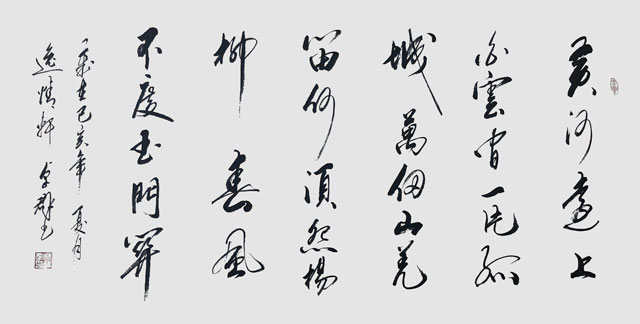 黄河遠上
白雲间一片孤
城萬仞山羌
笛何須怨楊
柳春風
不度玉門関
歲在己亥年夏月
逸情軒卓群书